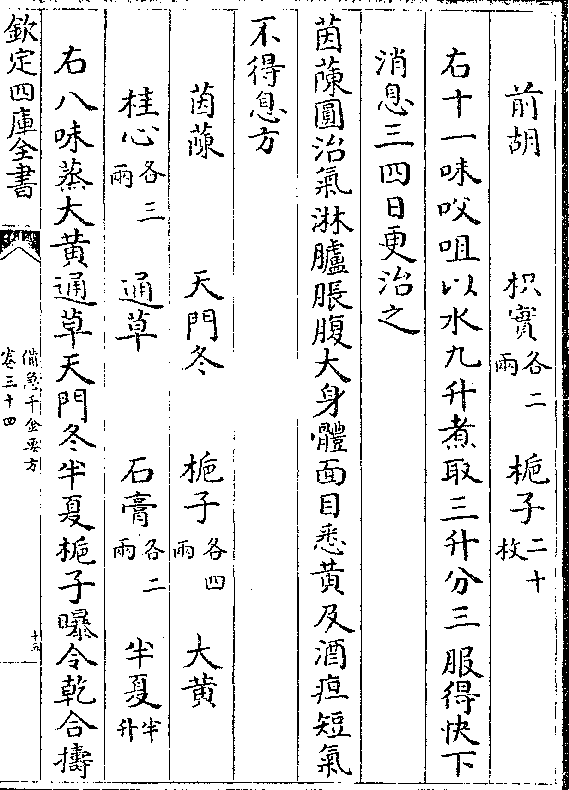 前胡　枳實各二兩　梔子二十枚
右十一味㕮咀以水九升煮取三升分三服得快下
消息三四日更治之
茵蔯圓治氣淋臚脹腹大身體面目悉黃及酒疸短氣
不得息方
茵蔯　天門冬　梔子各四兩　大黃
桂心各三兩　通草　石膏各二兩　半夏半升
右八味蒸大黃通草天門冬半夏梔子曝令乾合擣
欽定四庫全書
備急千金要方
卷三十四
十五